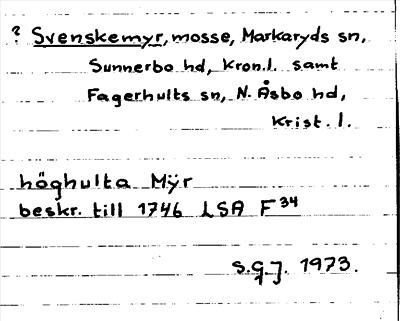 ? Svenskemyr, mosse, Markaryds sn,
Sunnerbo hd, Kron.l. samt
Fagerhults sn, N. Åsbo hd,
Krist. l.
höghulta Mÿr
beskr. till 1746 LSA F 34
S.G.J. 1973.